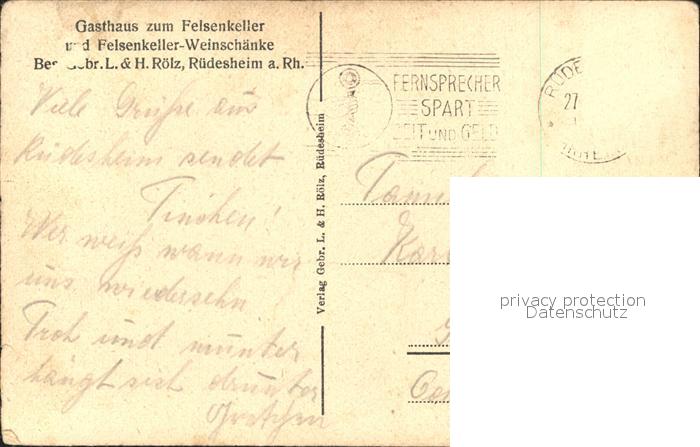 Gasthaus zum Felsenkeller
und Felsenkeller-Weinschänke
Bes. Gebr. L. & H. Rölz, Rüdesheim a. Rh.
Viele Grüße aus
Rüdesheim sendet
Tinchen!
Wer weiß wann wir
uns wiedersehn
Froh und munter
hängt sich drunter
Gretchen
Verlag Gebr. L. & H. Rölz, Rüdesheim
FERNSPRECHER
SPART
ZEIT UND GELD
RÜDE
27
privacy protection
Datenschutz